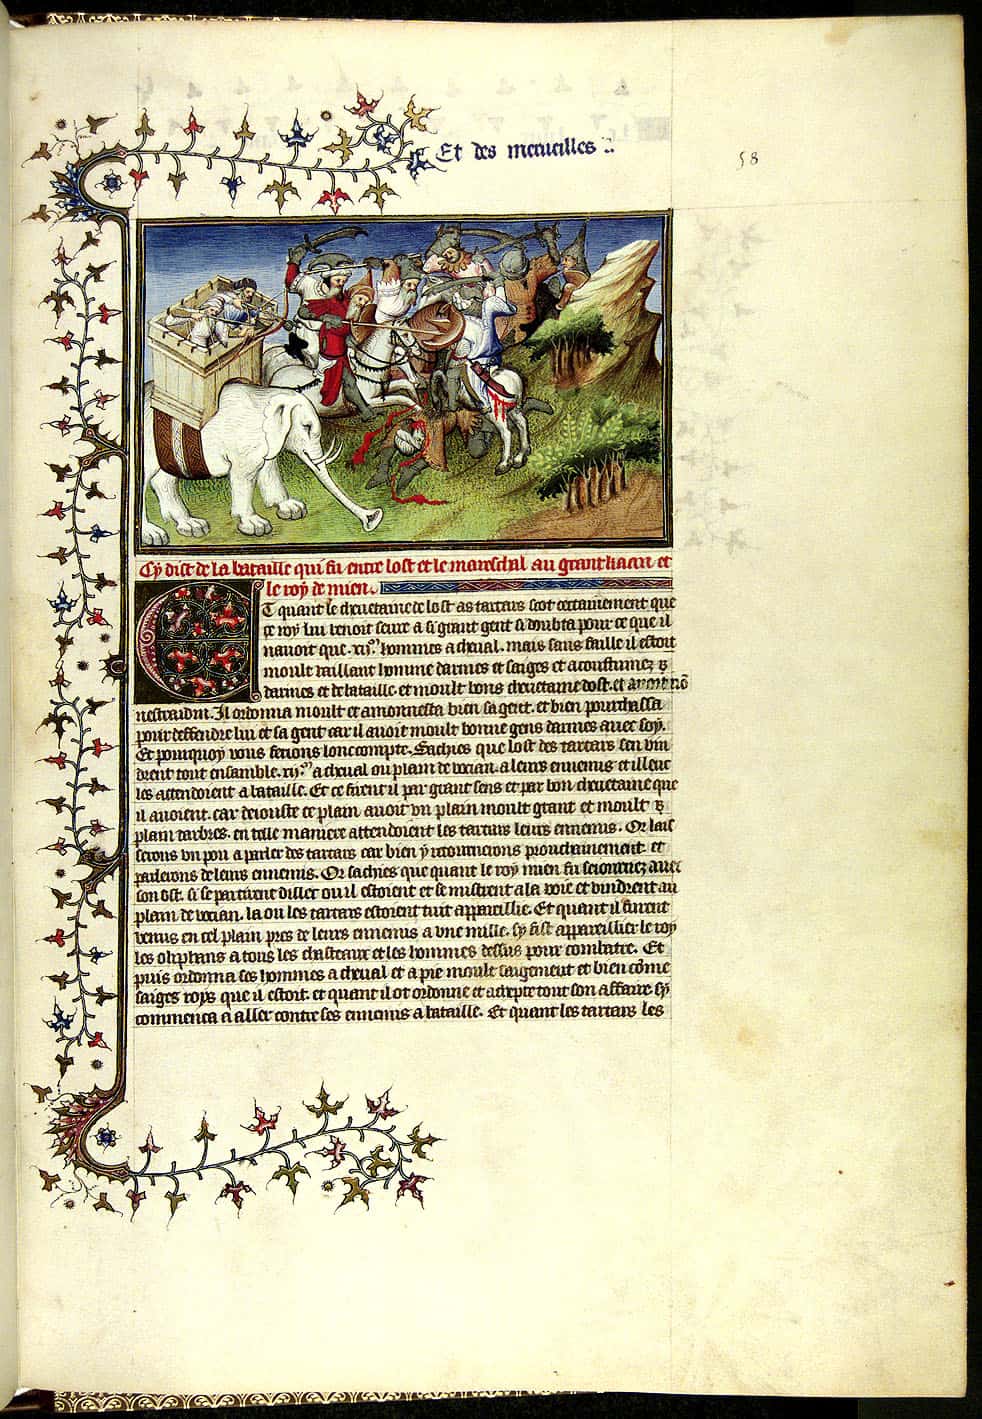 Et des merueilles
58
Cy dist de la bataille qui fu entre lost et le mareschal au grant kaan et
le roy de mien.
Et quant le cheuetaine de lost as tartars scot certainement que
ce roy lui venoit seure a si grant gent si doubta pour ce que il
nauoit que .xij.m hommes a cheual. mais sans faille il estoit
moult vaillant homme darmes et saiges et acoustumez
darmes et de bataille. et moult bons cheuetaine dost. et
Il ordonna moult et amonnesta bien sa gent. et bien pourchassa
pour deffendre lui et sa gent car il auoit moult bonne gens darmes auec soy.
Et pourquoy vous feroions lonc compte. Sachies que lost des tartars sen vin
drent tout ensamble .xij.m a cheual ou plain de vocian. a leurs ennemis et illeuc
les attendoient a bataille. Et ce firent il par grant sens et par bon cheuetaine que
il auoient. car deiouste ce plain auoit vn plain moult grant et moult
plain darbres. en telle maniere attendoient les tartars leurs ennemis. Or lais
serons vn pou a parler des tartars car bien y retournerons prouchainement et
parlerons de leurs ennemis. Or sachies que quant le roy mien fu seiournez auec
son ost. si se partirent dillec ou il estoient et se mistrent a la voie et vindrent au
plain de vocian. la ou les tartars estoient tuit appareillie. Et quant il furent
venus en cel plain pres de leurs ennemis a vne mille. sy fist appareillier le roy
les oliphans a tous les chasteaux et les hommes dessus pour combatre. Et
puis ordonna ses hommes a cheual et a pie moult saigement et bien cõme
saiges roys que il estoit. et quant il ot ordonne et adrepte tout son affaire sy
commenca a aller contre ses ennemis a bataille. Et quant les tartars les